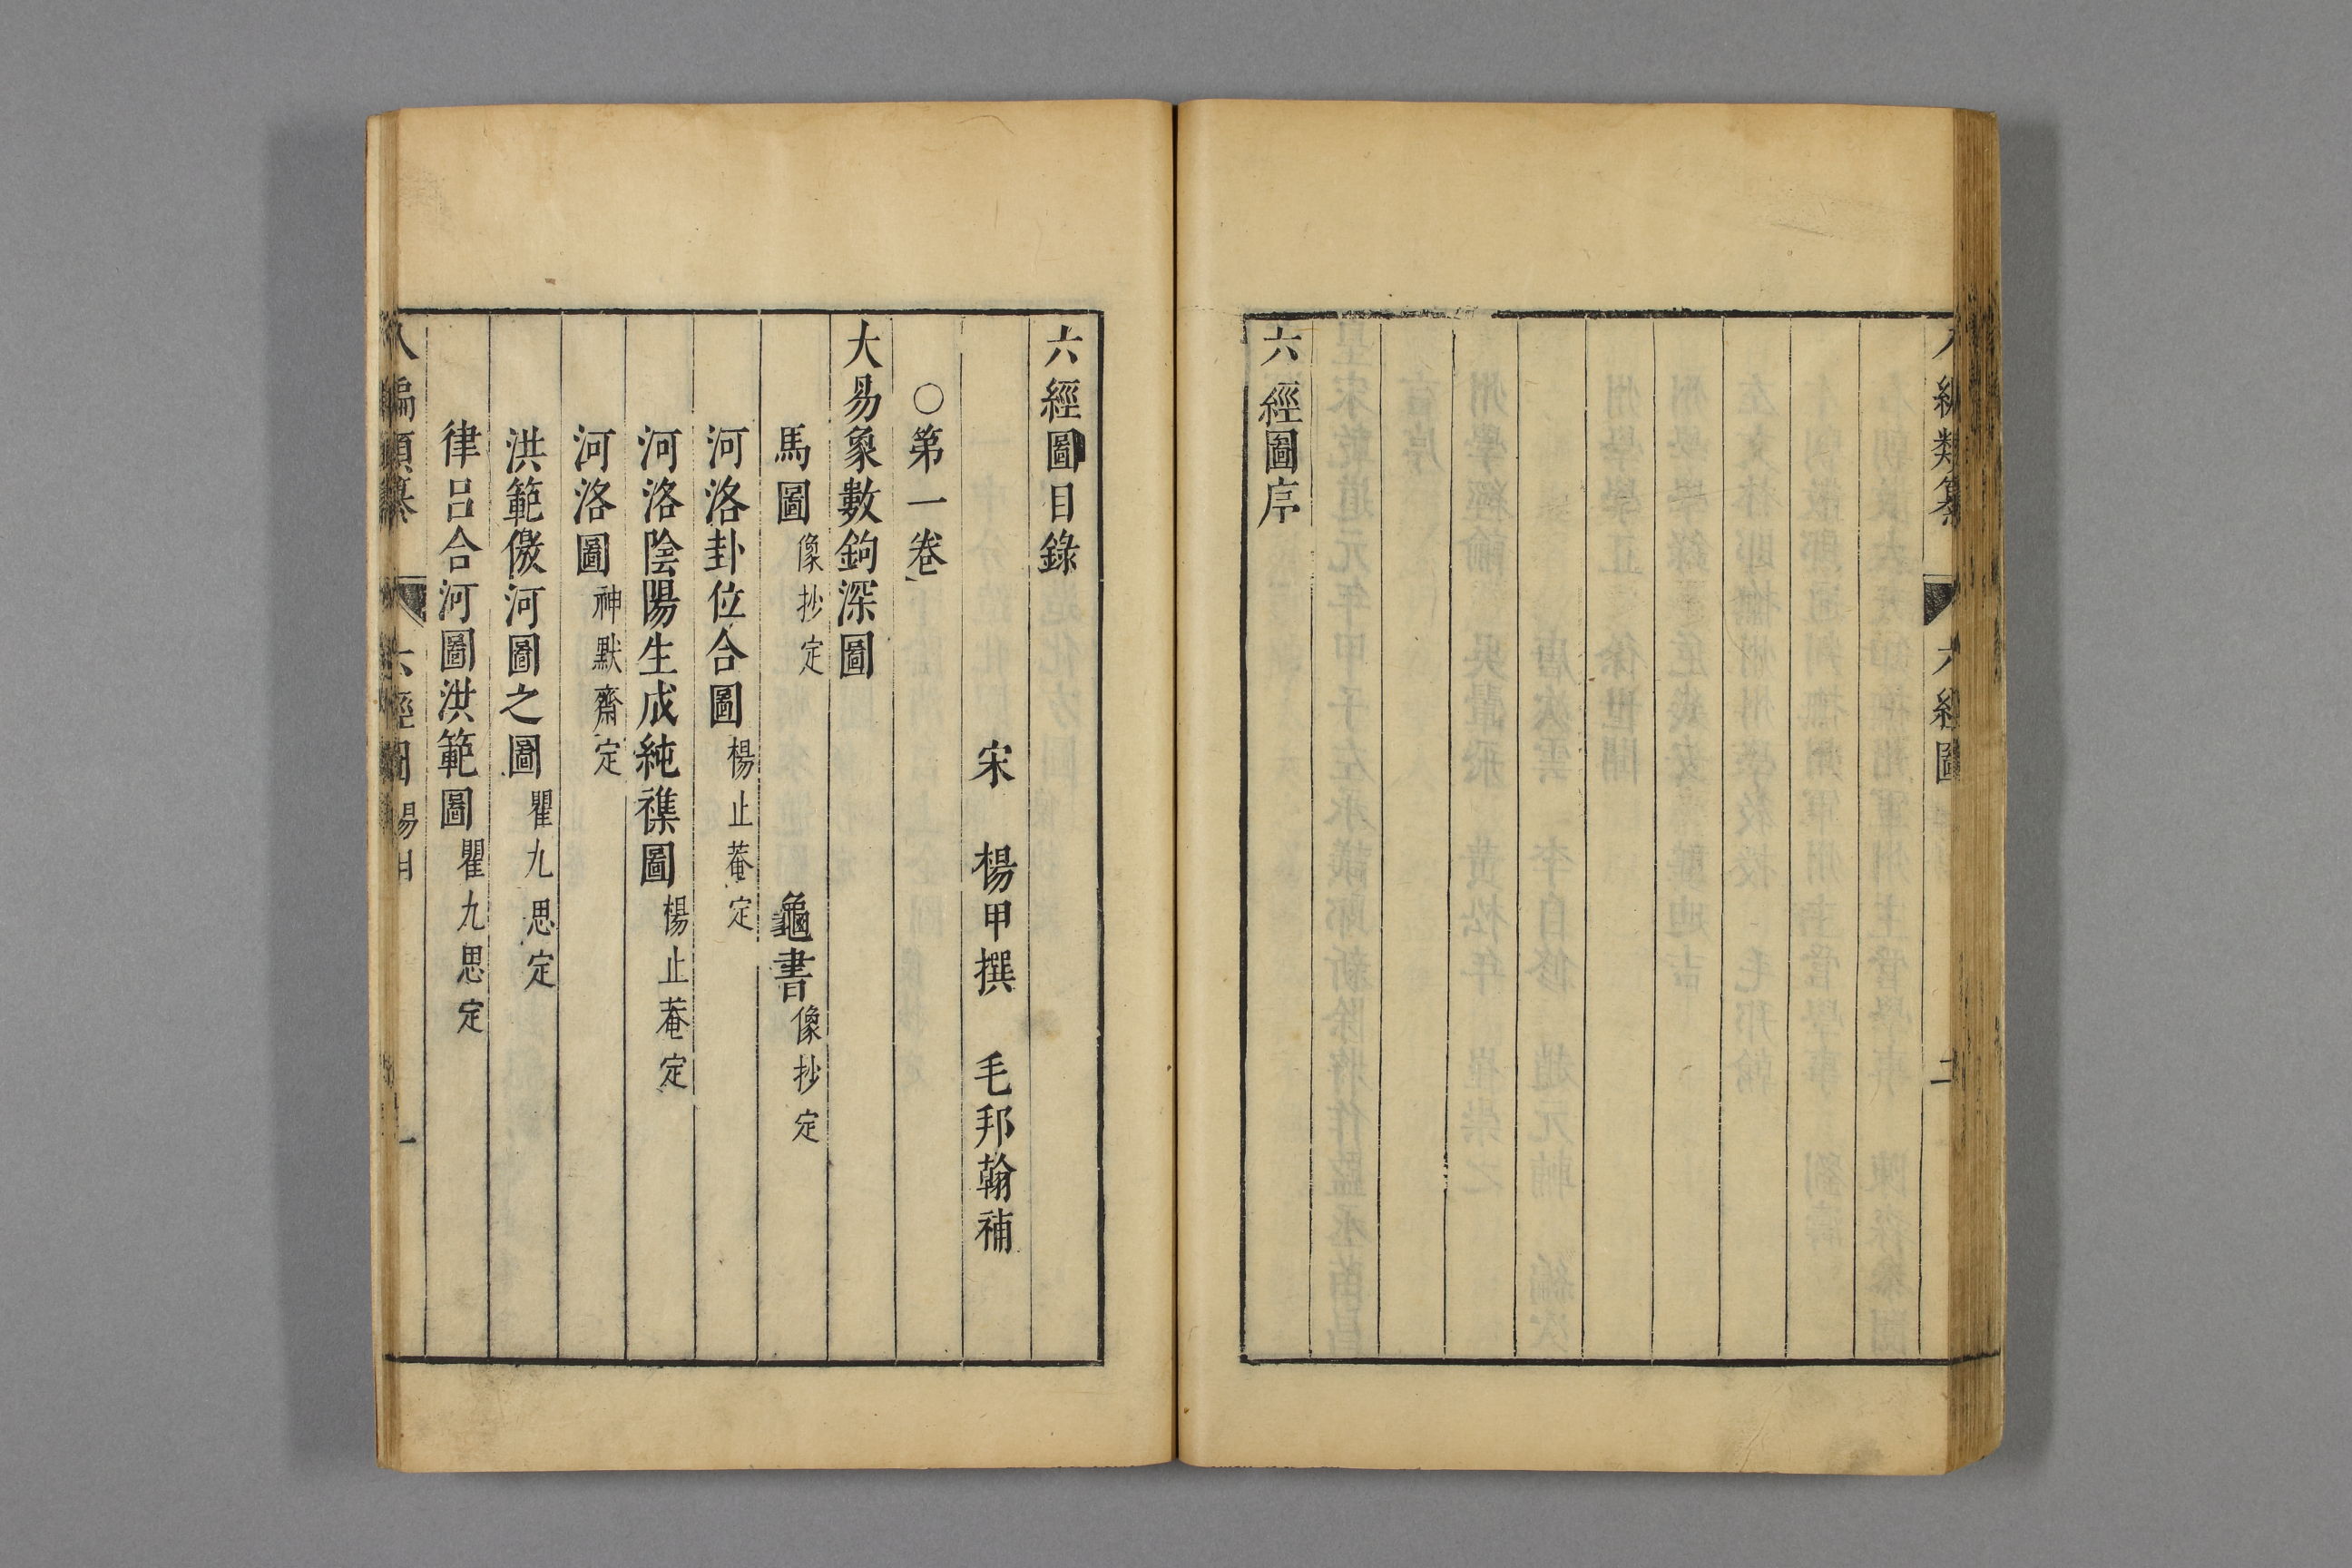 六經圖序
六經圖目錄
宋　楊甲撰　毛邦翰補
○第一卷
大易象數鉤深圖
馬圖像抄定　龜書像抄定
河洛卦位合圖楊止菴定
河洛陰陽生成純襍圖楊止菴定
河洛圖神默齋定
洪範傚河圖之圖瞿九思定
律呂合河圖洪範圖瞿九思定